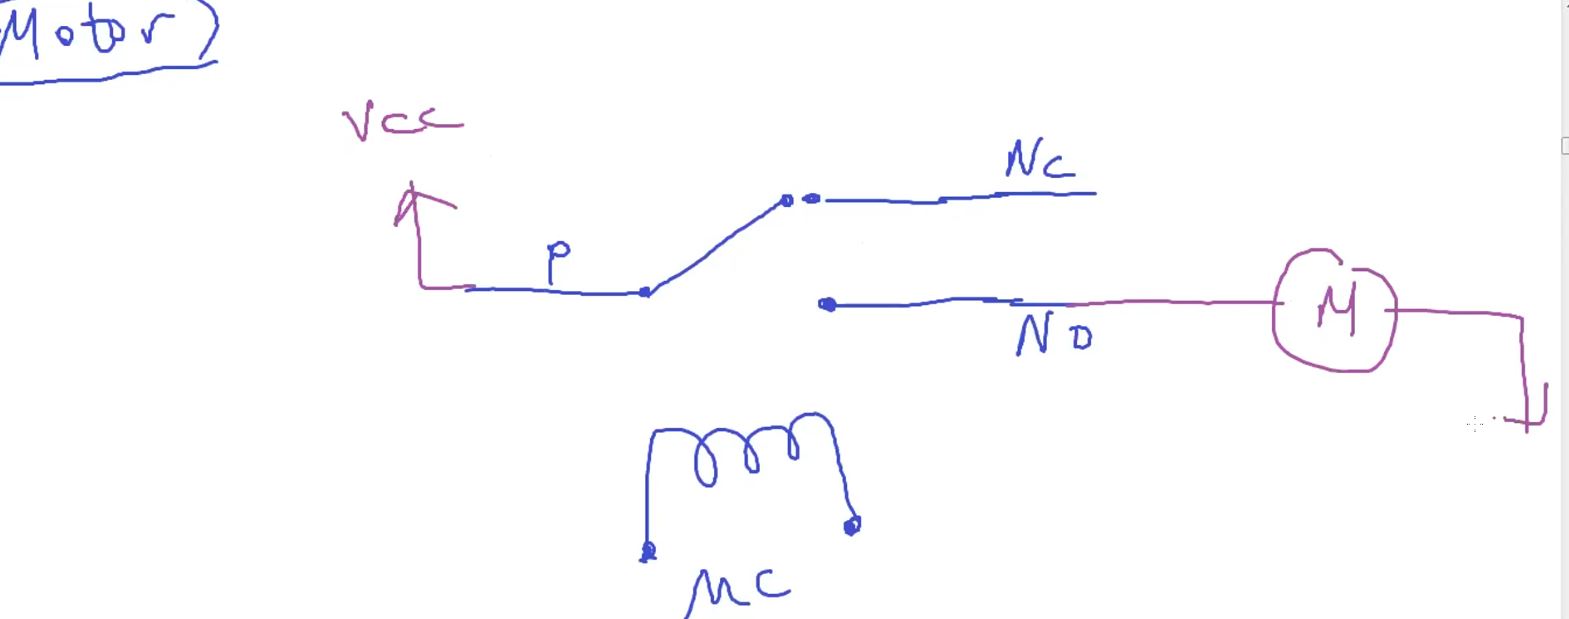 Motor)
Vcc
NC
P
M
NO
MC